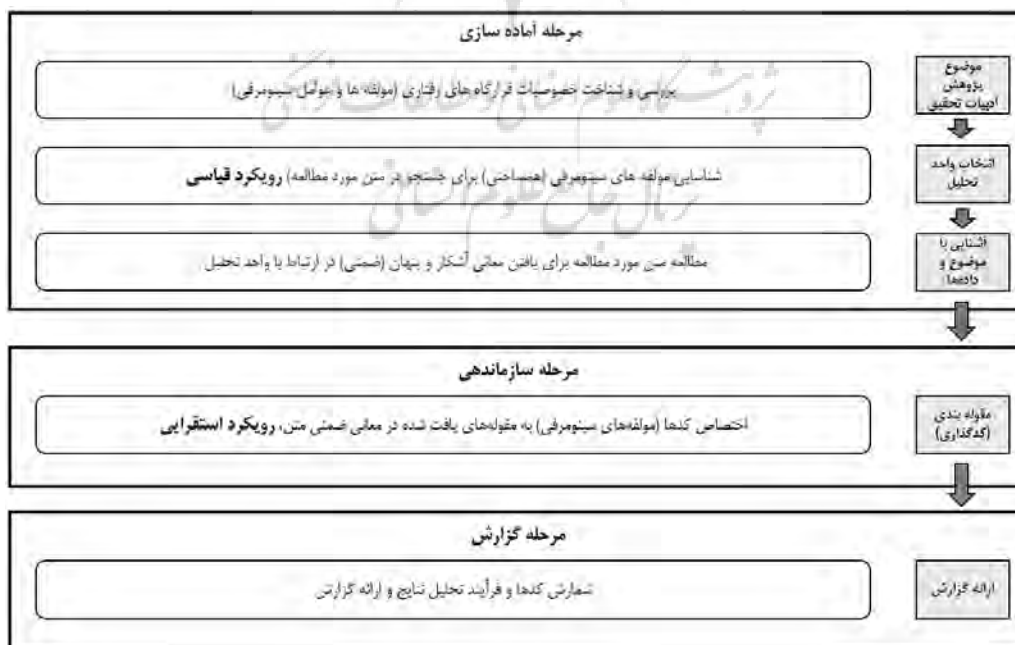 مرحله آماده سازی
موضوع
پژوهش
ادبیات تحقیق
بررسی و شناخت خصوصیات قرارگاه های رفتاری (مولفه ها و عوامل سینومرفی)
انتخاب واحد
تحلیل
شناسایی مولفه های سینومرفی (همساختی) برای جستجو در متن مورد مطالعه) رویکرد قیاسی
آشنایی با
موضوع و
داده‌ها
مطالعه متن مورد مطالعه برای یافتن معانی آشکار و پنهان (ضمنی) در ارتباط با واحد تحلیل
مرحله سازماندهی
مقوله بندی
(کدگذاری)
اختصاص کدها (مولفه‌های سینومرفی) به مقوله‌های یافت شده در معانی ضمنی متن، رویکرد استقرایی
مرحله گزارش
ارائه گزارش
شمارش کدها و فرآیند تحلیل نتایج و ارائه گزارش
پژوهشگاه علوم انسانی و مطالعات فرهنگی
پرتال جامع علوم انسانی